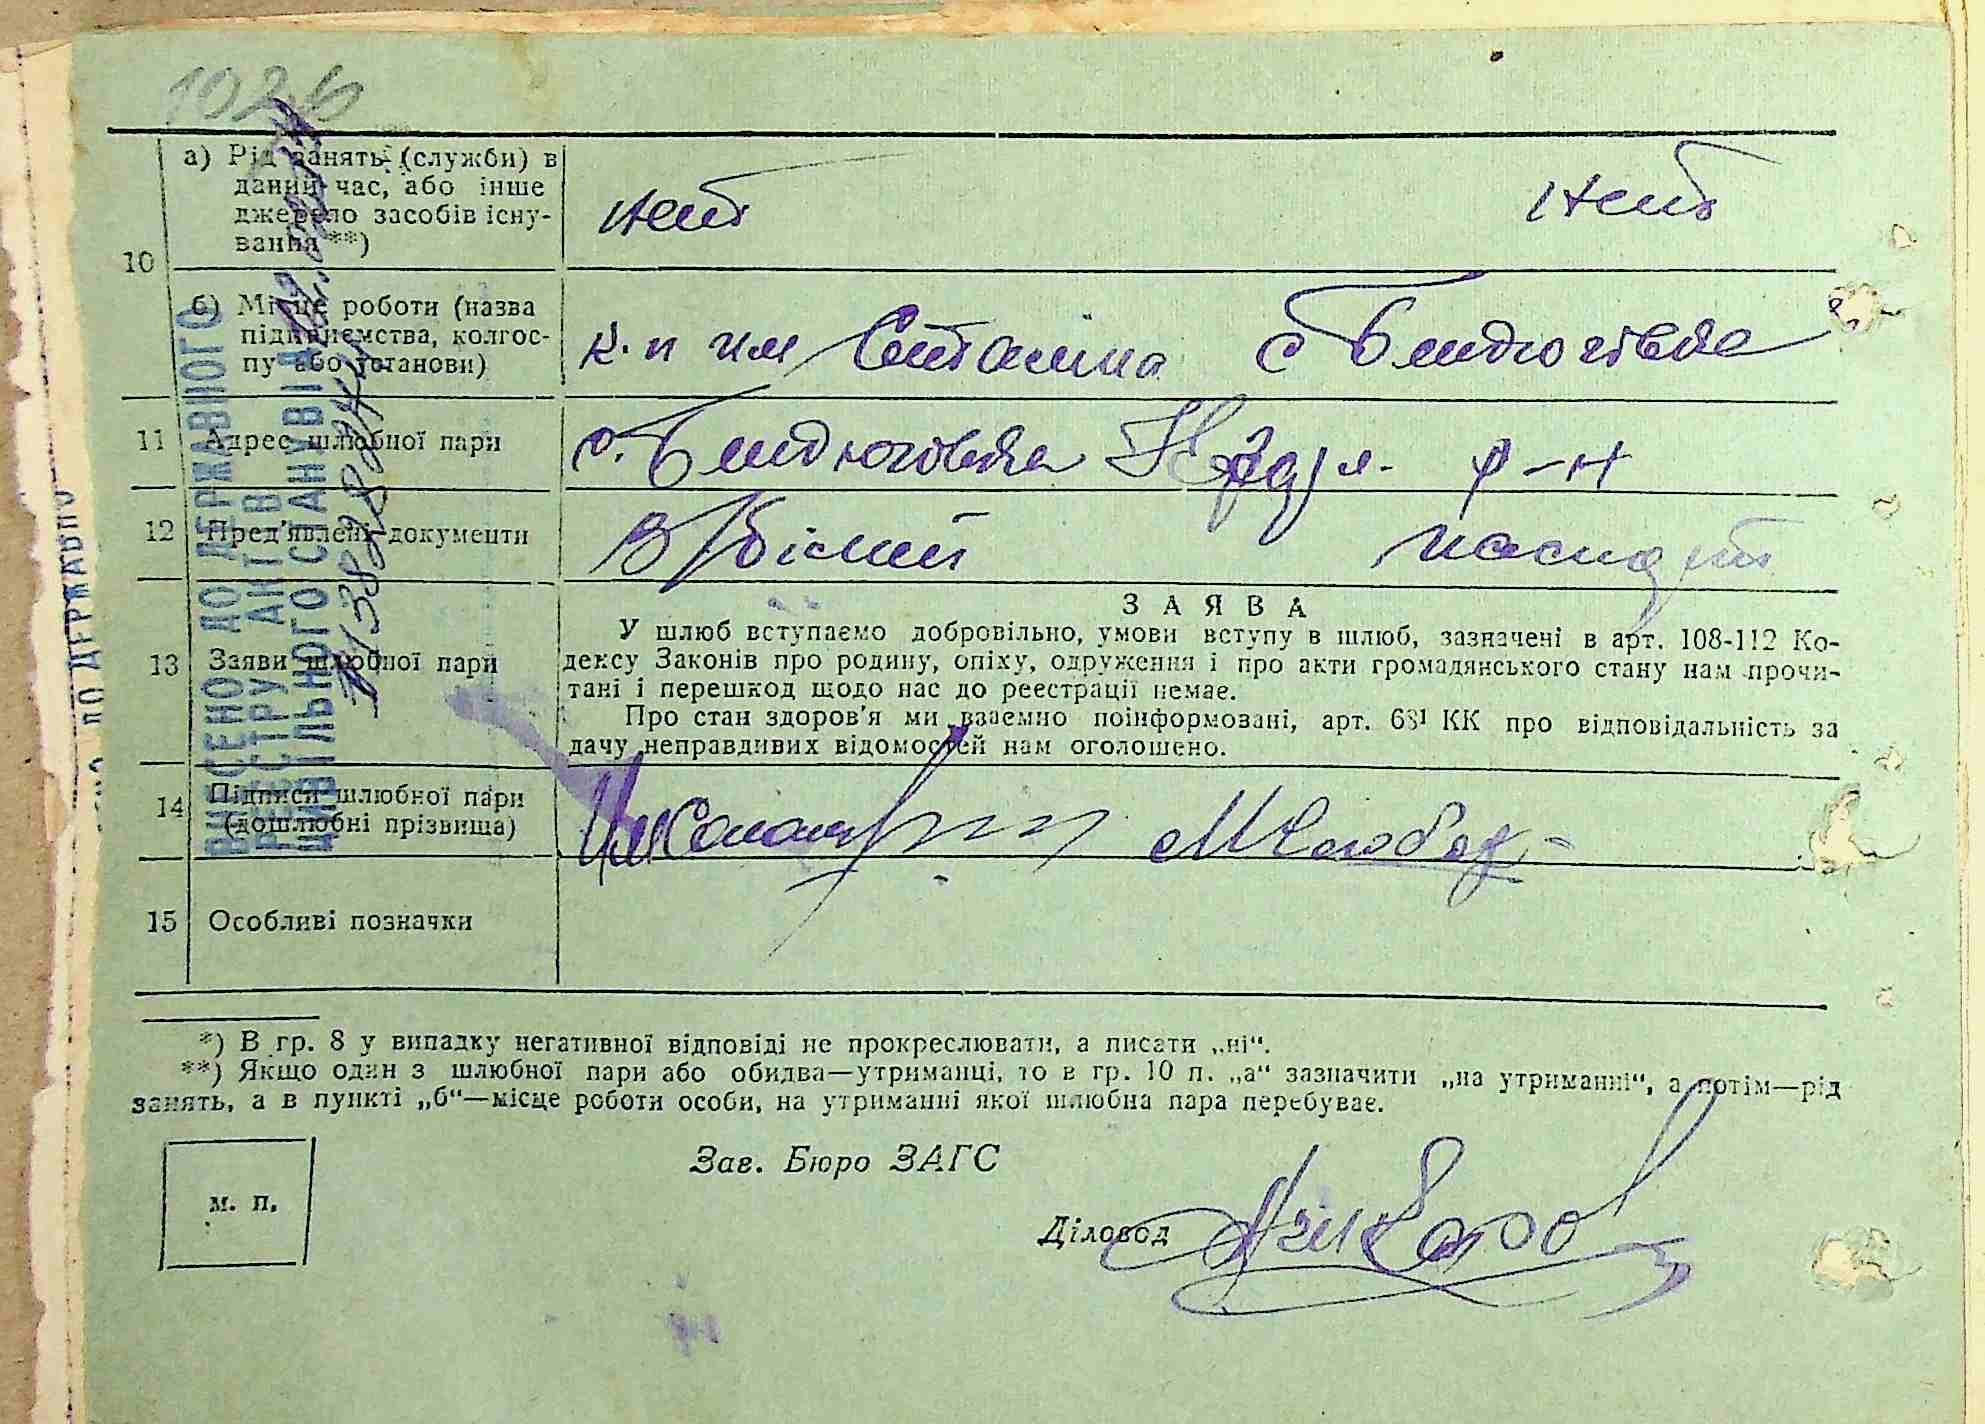 102б
10
а) Рід занять (служби) в
даний час, або інше
джерело засобів існу-
вання **)
нет нет
б) Місце роботи (назва
підприємства, колгос-
пу або установи)
к-п им Сталіна с Бендюгівка
11 Адрес шлюбної пари
с. Бендюговка р-н
12 Пред'явлені документи
В/білет паспорт
13 Заяви шлюбної пари
ЗАЯВА
У шлюб вступаємо добровільно, умови вступу в шлюб, зазначені в арт. 108-112 Ко-
дексу Законів про родину, опіху, одруження і про акти громадянського стану нам прочи-
тані і перешкод щодо нас до реестрації немає.
Про стан здоров'я ми взаемно поінформовані, арт. 68¹ КК про відповідальність за
дачу неправдивих відомостей нам оголошено.
14 Підписи шлюбної пари
(дошлюбні прізвища)
15 Особливі позначки
*) В гр. 8 у випадку негативної відповіді не прокреслювати, а писати „ні“.
**) Якщо один з шлюбної пари або обидва—утриманці, то в гр. 10 п. „а“ зазначити „на утриманні“, а потім—рід
занять, а в пункті „б“—місце роботи особи, на утриманні якої шлюбна пара перебуває.
Зав. Бюро ЗАГС
м. п.
Діловод
ВНЕСЕНО ДО ДЕРЖАВНОГО
РЕЄСТРУ АКТІВ
ЦИВІЛЬНОГО СТАНУ ВІД
ПО ДЕРЖАВНО